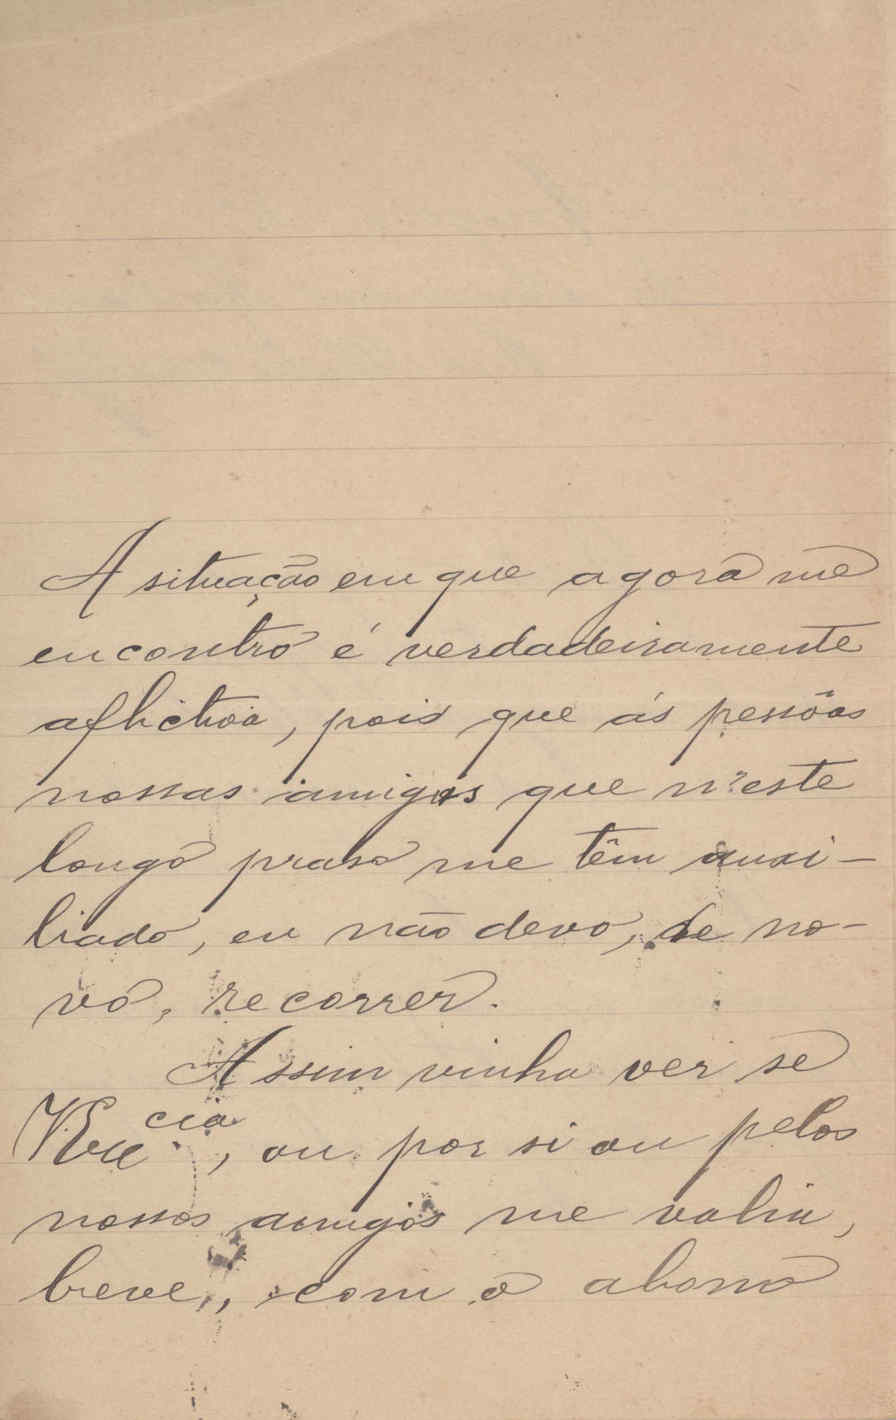 A situação em que agora me
encontro é verdadeiramente
aflictiva, pois que ás pessôas
nossas amigas que n'este
longo praso me têm auxi-
liado, eu não devo, de no-
vo, recorrer.
Assim vinha ver se
V. Ex.cia, ou por si ou pelos
nossos amigos me valia,
breve, com o abono